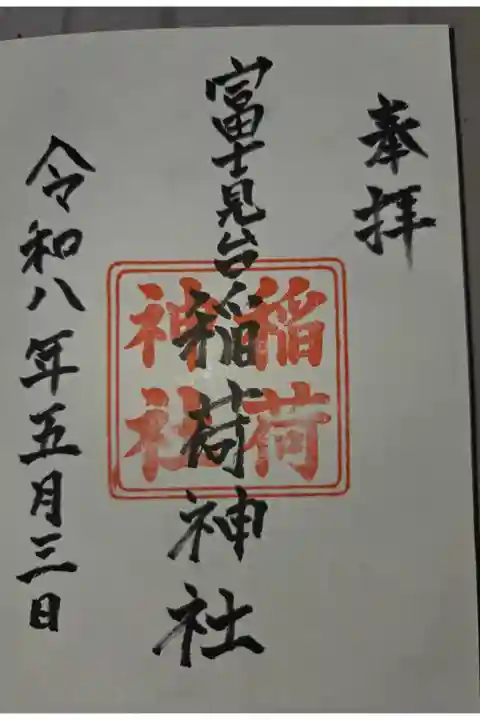 奉拝
富士見台稲荷神社
稲荷
神社
令和八年五月三日